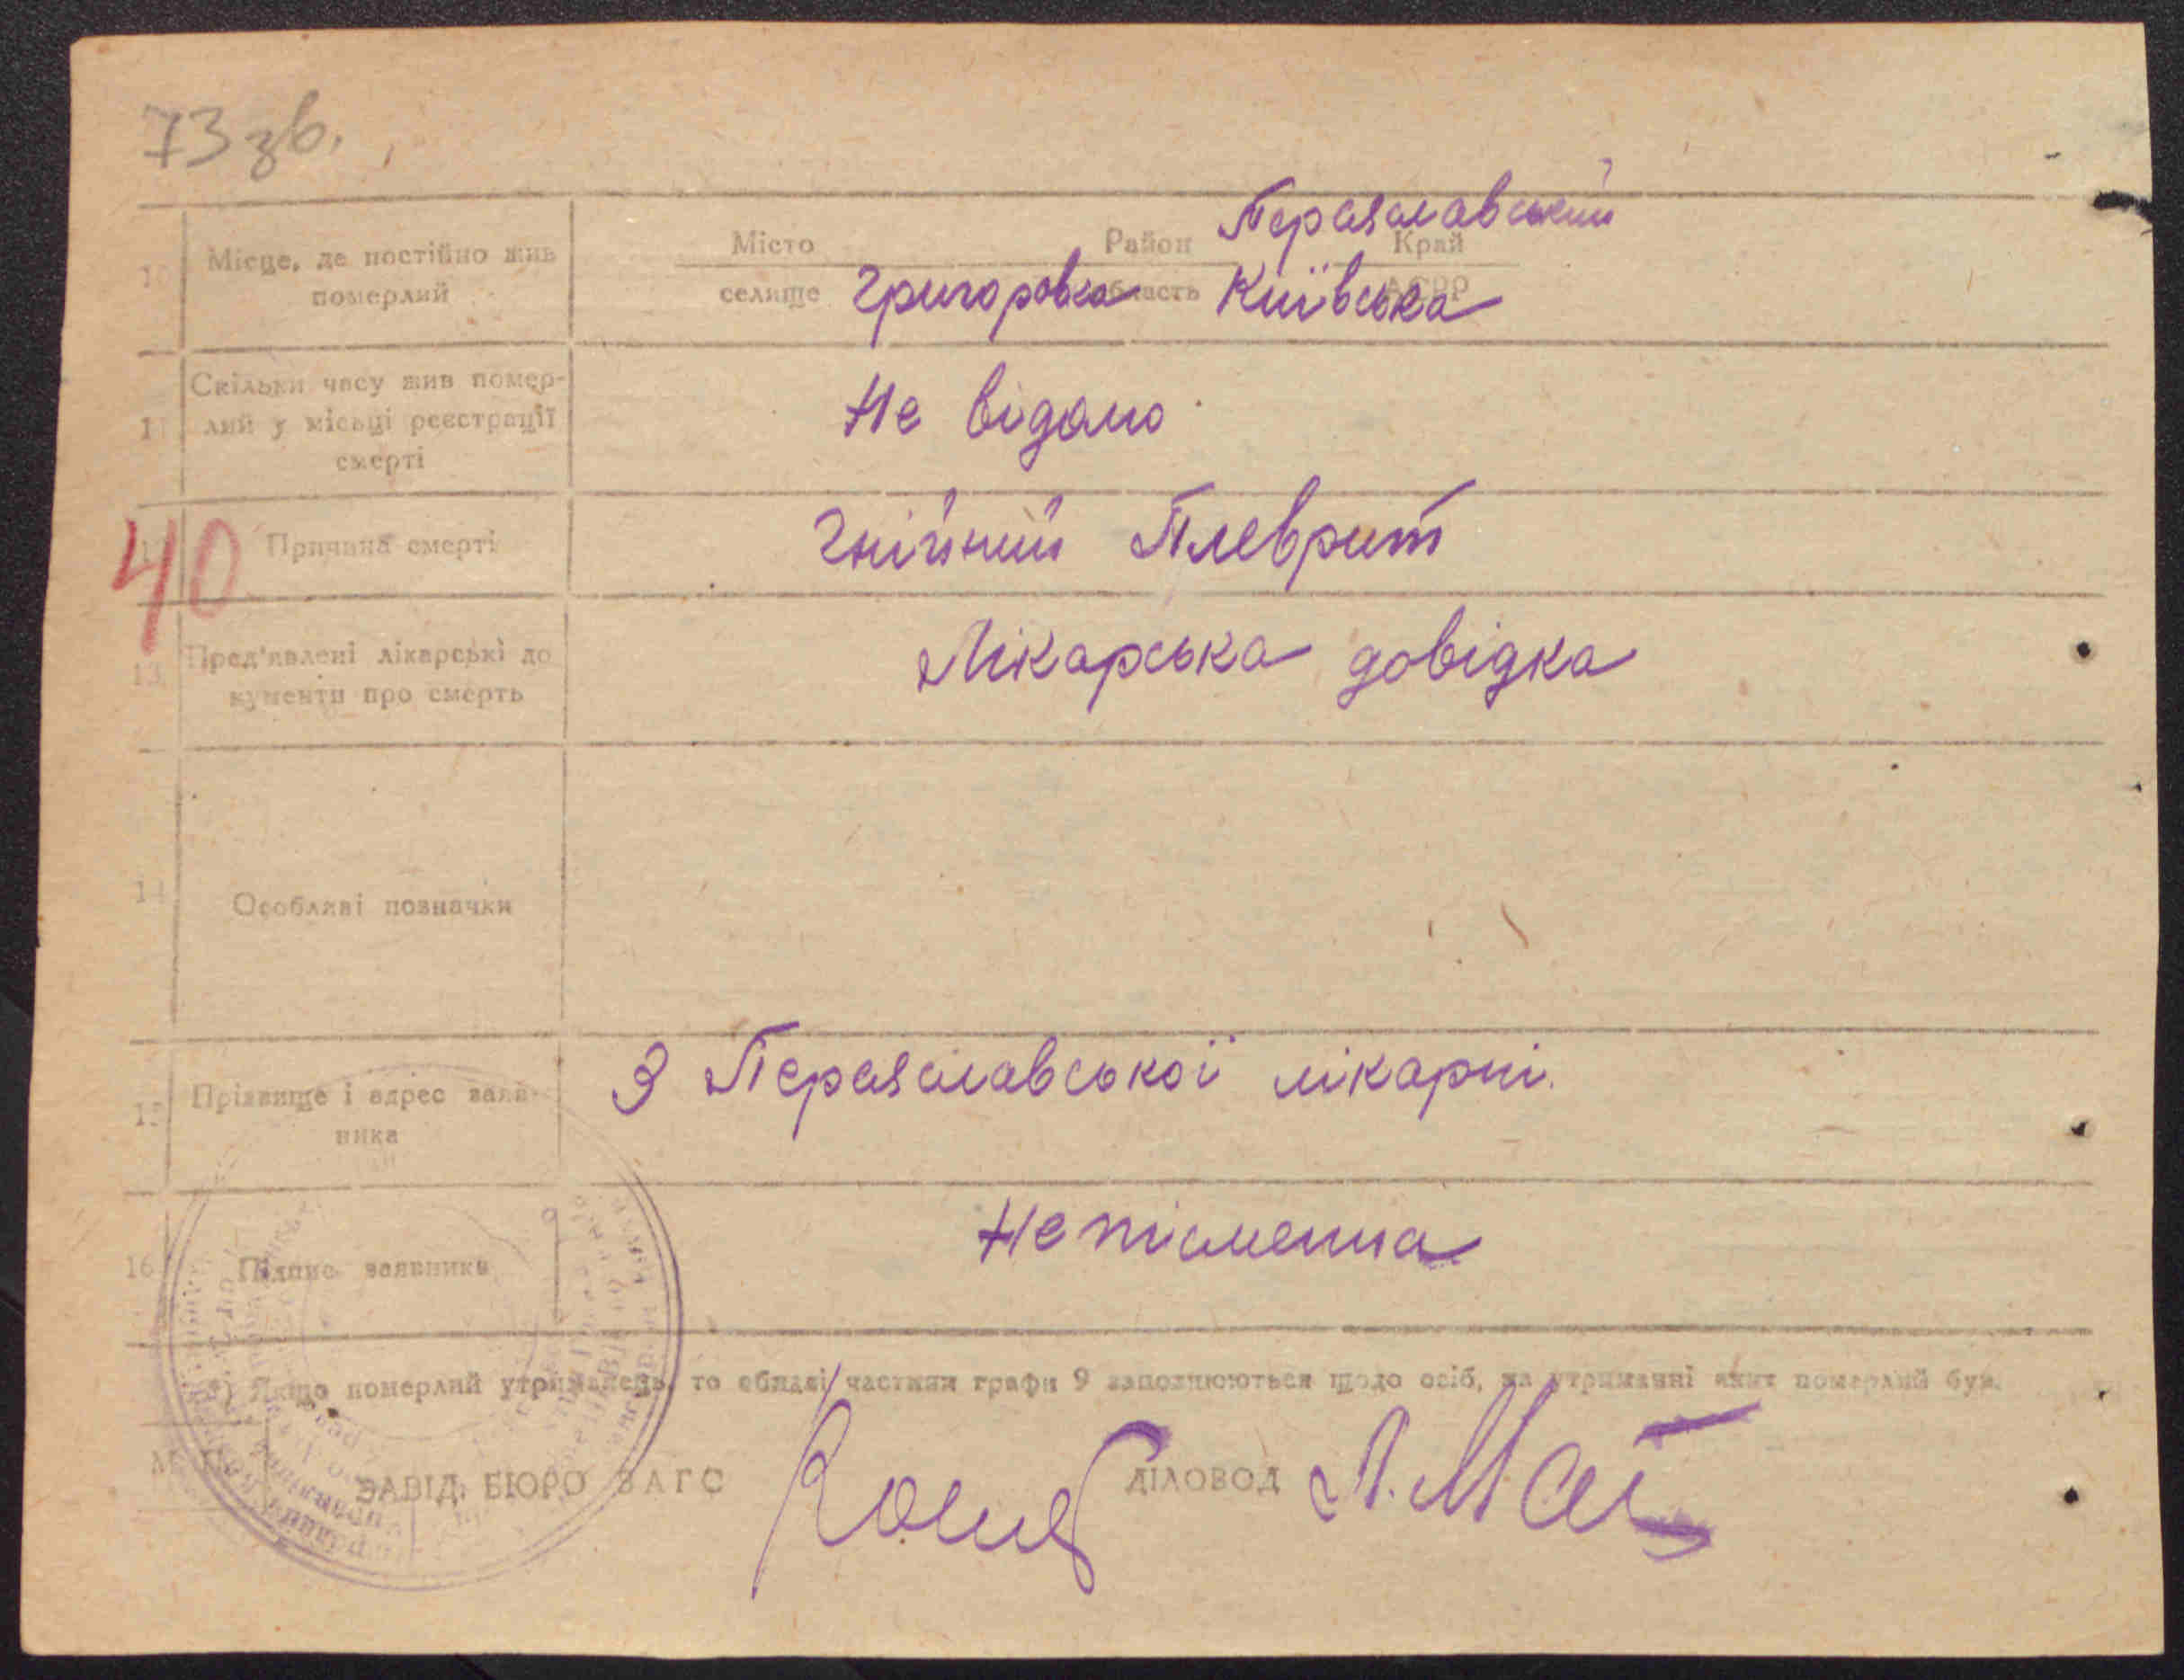 73 зв.
Переяславський
10 Місце, де постійно жив
померлий
Місто Район Край
селище Григоровка область Київська АСРР
11 Скільки часу жив помер-
лий у місьці реєстрації
смерті
Не відомо
40
12 Причина смерті
Гнійний Плеврит
13 Пред'явлені лікарські до
кументи про смерть
Лікарська довідка
14 Особливі позначки
15 Прізвище і адрес заяв-
ника
З Переяславської лікарні.
16 Підпис заявника
Не письменна
*) Якщо померлий утриманець, то обидві частини графи 9 заповнюються щодо осіб, на утриманні яких померлий був.
М. П.
ЗАВІД. БЮРО ЗАГС
ДІЛОВОД